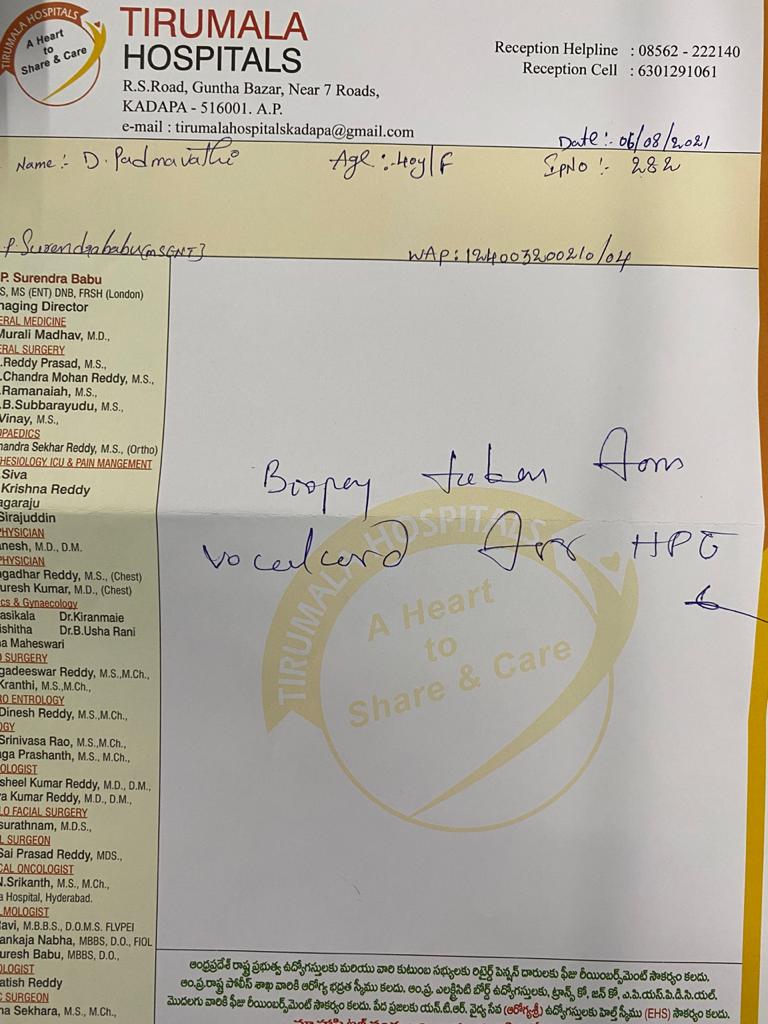 TIRUMALA HOSPITALS
A Heart
to
Share & Care
TIRUMALA
HOSPITALS
R.S.Road, Guntha Bazar, Near 7 Roads,
KADAPA - 516001. A.P.
e-mail : tirumalahospitalskadapa@gmail.com
Reception Helpline : 08562 - 222140
Reception Cell : 6301291061
Date:- 06/08/2021
Name:- D. Padmavathi Age:-40y/F IpNo:- 282
P. Surendrababu [MS ENT] WAP: 124003200210/04
P. Surendra Babu
S, MS (ENT) DNB, FRSH (London)
naging Director
ERAL MEDICINE
Murali Madhav, M.D.,
ERAL SURGERY
.Reddy Prasad, M.S.,
.Chandra Mohan Reddy, M.S.,
.Ramanaiah, M.S.,
.B.Subbarayudu, M.S.,
Vinay, M.S.,
OPAEDICS
handra Sekhar Reddy, M.S., (Ortho)
HESIOLOGY ICU & PAIN MANGEMENT
.Siva
Krishna Reddy
agaraju
Sirajuddin
PHYSICIAN
anesh, M.D., D.M.
PHYSICIAN
gadhar Reddy, M.S., (Chest)
uresh Kumar, M.D., (Chest)
cs & Gynaecology
asikala Dr.Kiranmaie
ishitha Dr.B.Usha Rani
a Maheswari
SURGERY
gadeeswar Reddy, M.S.,M.Ch.,
Kranthi, M.S.,M.Ch.,
RO ENTROLOGY
Dinesh Reddy, M.S.,M.Ch.,
OGY
Srinivasa Rao, M.S.,M.Ch.,
ga Prashanth, M.S., M.Ch.,
OLOGIST
sheel Kumar Reddy, M.D., D.M.,
a Kumar Reddy, M.D., D.M.,
LO FACIAL SURGERY
surathnam, M.D.S.,
L SURGEON
Sai Prasad Reddy, MDS.,
CAL ONCOLOGIST
N.Srikanth, M.S., M.Ch.,
a Hospital, Hyderabad.
LMOLOGIST
Ravi, M.B.B.S., D.O.M.S. FLVPEI
ankaja Nabha, MBBS, D.O., FIOL
uresh Babu, MBBS, D.O.,
OLOGIST
atish Reddy
C SURGEON
na Sekhara, M.S., M.Ch.,
Biopsy taken from
vocalcord for HPE
TIRUMALA HOSPITALS
A Heart
to
Share & Care
ఆంధ్రప్రదేశ్ రాష్ట్ర ప్రభుత్వ ఉద్యోగస్తులకు మరియు వారి కుటుంబ సభ్యులకు రిటైర్డ్ పెన్షన్ దారులకు ఫీజు రీయింబర్స్‌మెంట్ సౌకర్యం కలదు.
ఆం.ప్ర.రాష్ట్ర పోలీస్ శాఖ వారికి ఆరోగ్య భద్రత స్కీము కలదు. ఆం.ప్ర. ఎలక్ట్రిసిటి బోర్డ్ ఉద్యోగస్తులకు, ట్రాన్స్ కో, జన్ కో, ఎ.పి.యస్.పి.డి.సి.యల్.
మొదలగు వారికి ఫీజు రీయింబర్స్‌మెంట్ సౌకర్యం కలదు. పేద ప్రజలకు యన్.టి.ఆర్. వైద్య సేవ (ఆరోగ్యశ్రీ) ఉద్యోగస్తులకు హెల్త్ స్కీము (EHS) సౌకర్యం కలదు.